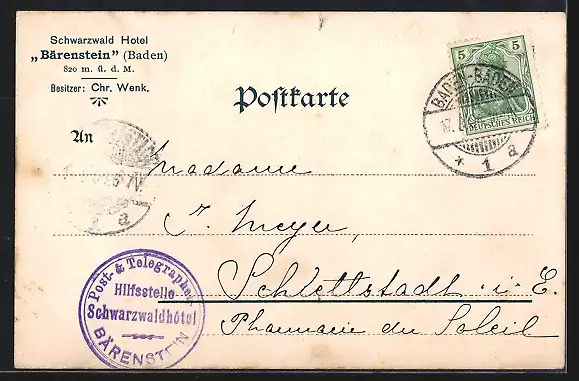 Schwarzwald Hotel
„Bärenstein" (Baden)
820 m. ü. d. M.
Besitzer: Chr. Wenk.
Postkarte
5 5
DEUTSCHES REICH
BADEN-BADEN
* 1 a
An
Madame
J. Meyer,
Schlettstadt i. E.
Pharmacie du Soleil
Post- & Telegraphen
Hilfsstelle
Schwarzwaldhôtel
BÄRENSTEIN